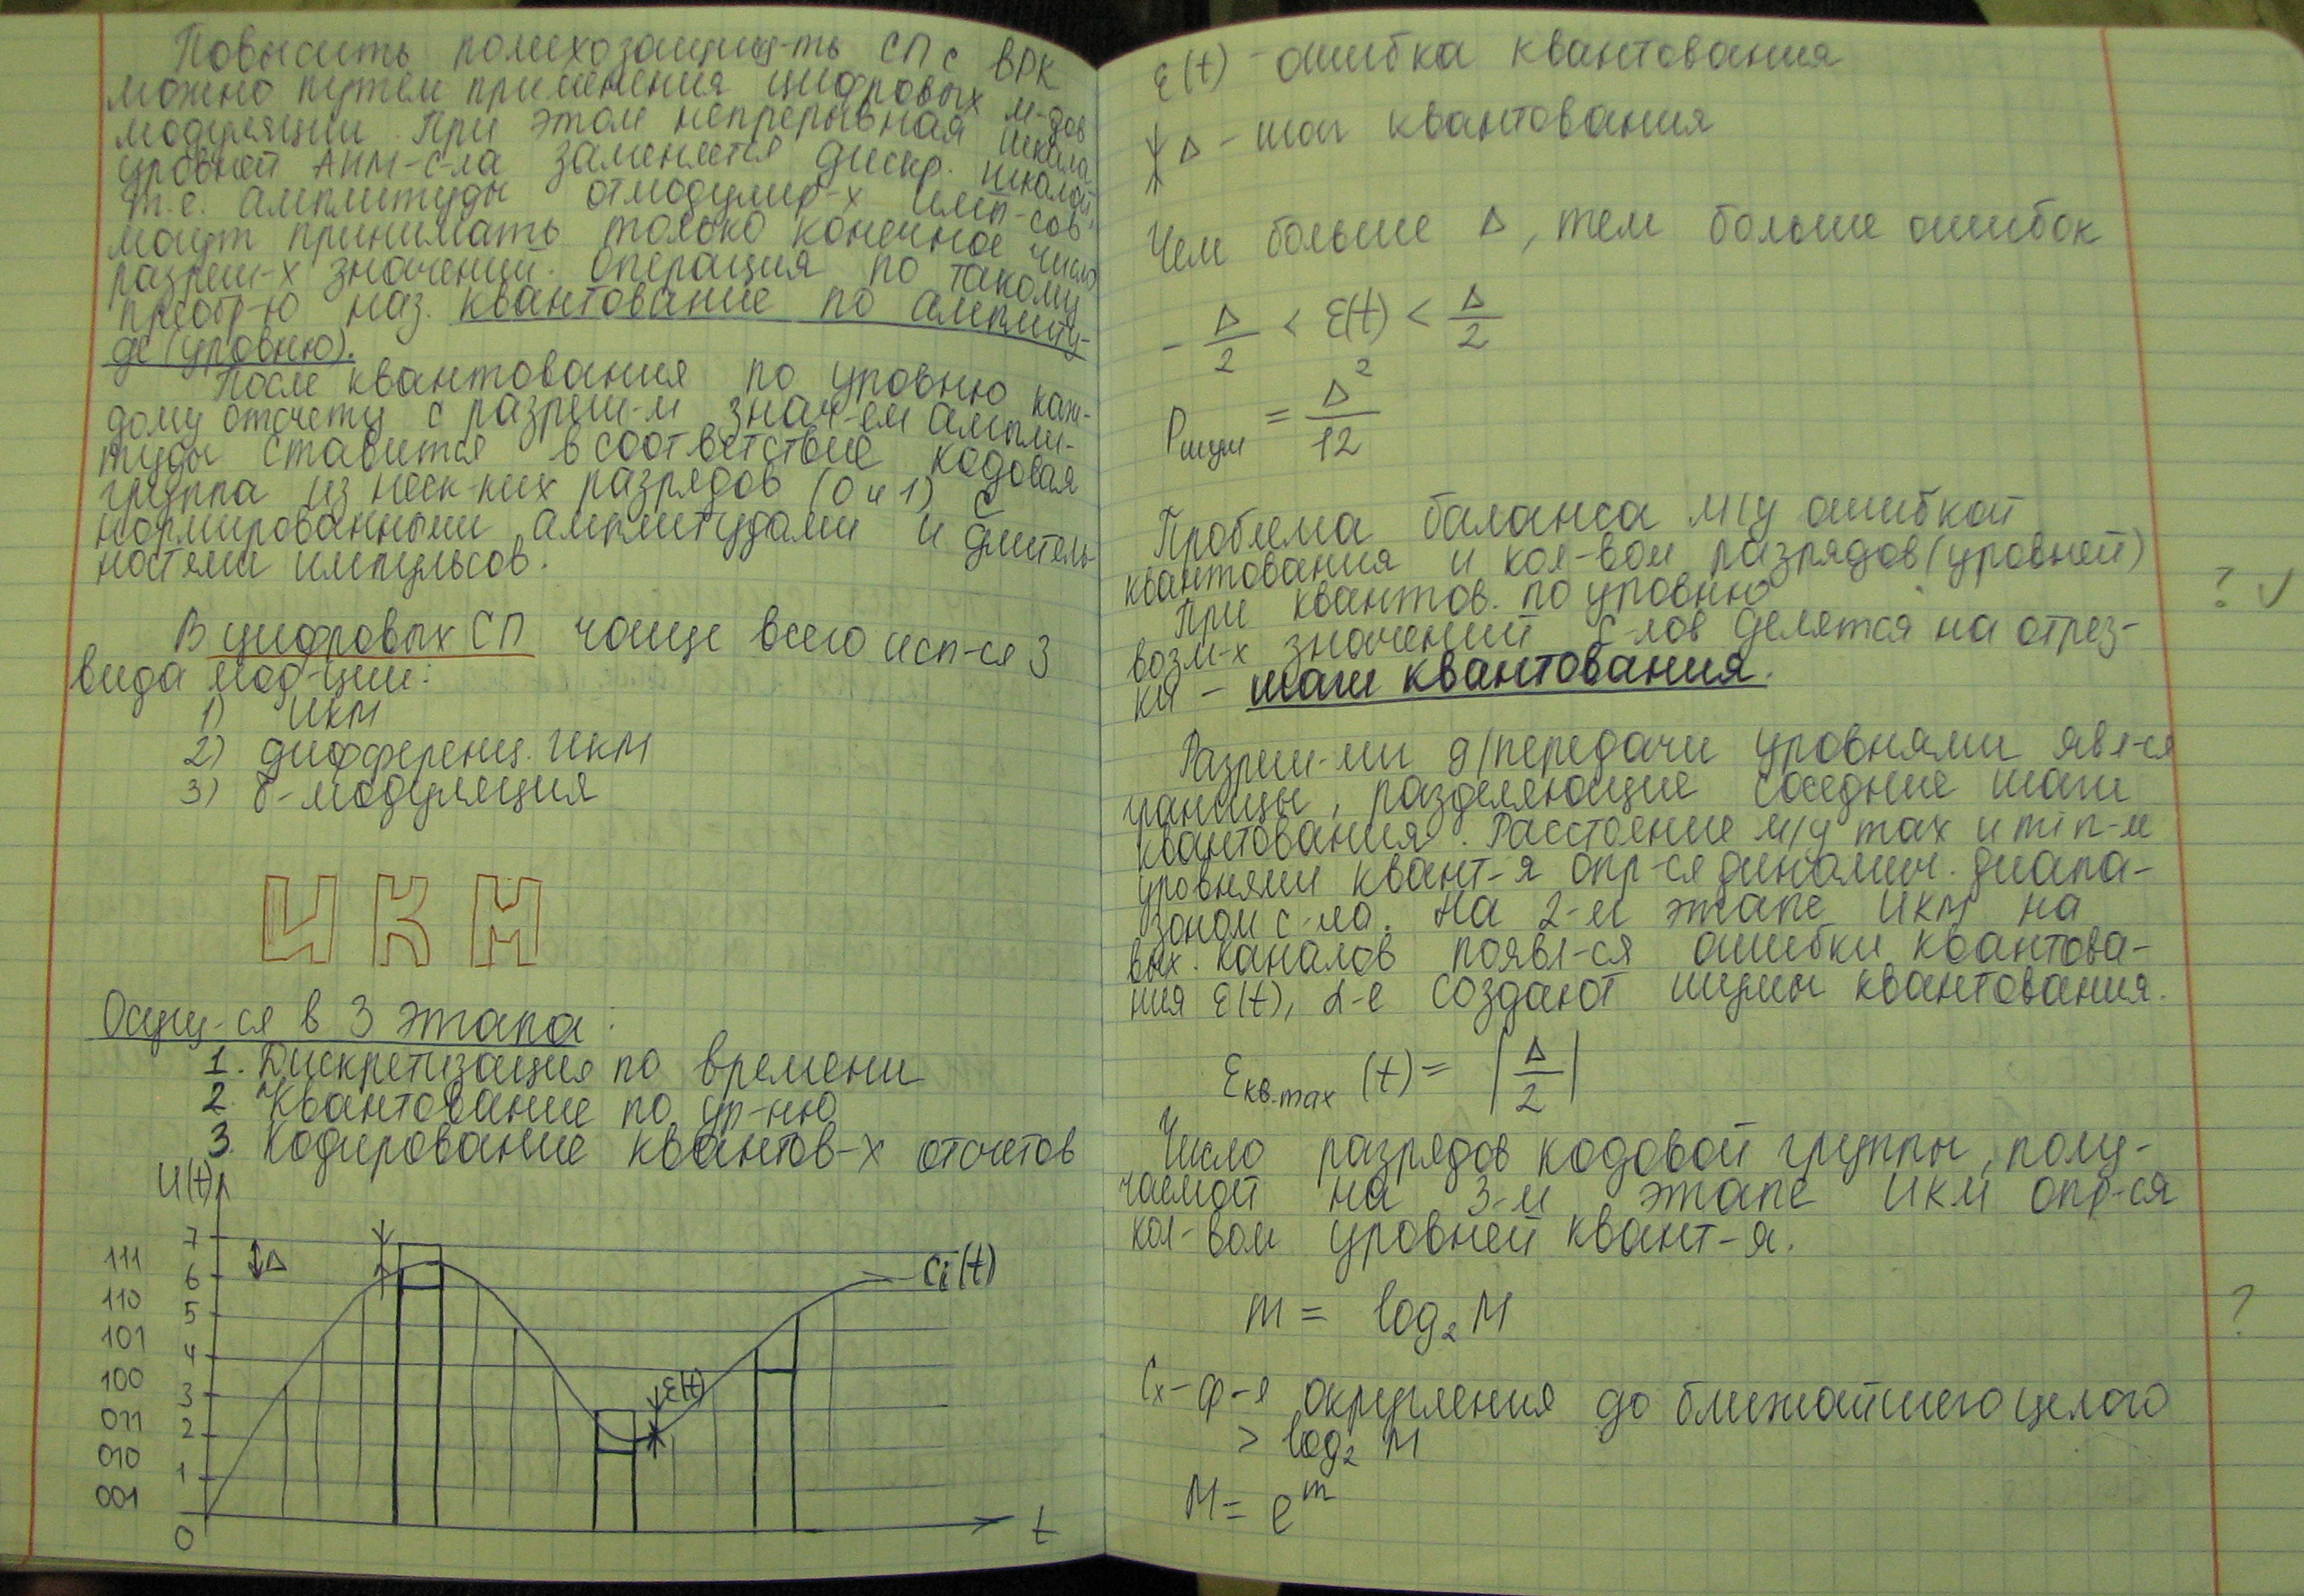 Повысить помехозащищ-ть СП с ВРК
можно путем применения цифровых м-дов
модуляции. При этом непрерывная шкала
уровней АИМ-с-ла заменяется дискр. шкалой,
т.е. амплитуды отмодулир-х имп-сов
могут принимать только конечное число
разреш-х значений. Операция по такому
преобр-ю наз. квантование по амплиту-
де (уровню).
После квантования по уровню каж-
дому отсчету с разреш-м знач-ем ампли-
туды ставится в соответствие кодовая
группа из неск-ких разрядов (0 и 1) с
нормированными амплитудами и длитель-
ностями импульсов.
В цифровых СП чаще всего исп-ся 3
вида мод-ции:
1) ИКМ
2) дифференц. ИКМ
3) δ-модуляция
ИКМ
Осущ-ся в 3 этапа:
1. Дискретизация по времени
2. Квантование по ур-ню
3. Кодирование квантов-х отсчетов
U(t)
7
111
Δ
6
Ci(t)
110
5
101
4
100
3
ε(t)
011
2
010
1
001
0
t
ε(t) - ошибка квантования
Δ - шаг квантования
Чем больше Δ, тем больше ошибок
- Δ/2 < ε(t) < Δ/2
Pшум = Δ²/12
Проблема баланса м/у ошибкой
квантования и кол-вом разрядов (уровней)
? ✓
При квантов. по уровню
возм-х значений с-лов делятся на отрез-
ки - шаги квантования.
Разреш-ми д/передачи уровнями явл-ся
границы, разделяющие соседние шаги
квантования. Расстояние м/у max и min-м
уровнями квант-я опр-ся динамич. диапа-
зоном с-ла. На 2-м этапе ИКМ на
вых. каналов появл-ся ошибки квантова-
ния ε(t), к-е создают шумы квантования.
εкв.max (t) = |Δ/2|
Число разрядов кодовой группы, полу-
чаемой на 3-м этапе ИКМ опр-ся
кол-вом уровней квант-я.
m = log₂ M
?
Cx - ф-я округления до ближайшего целого
> log₂ M
M = e^m